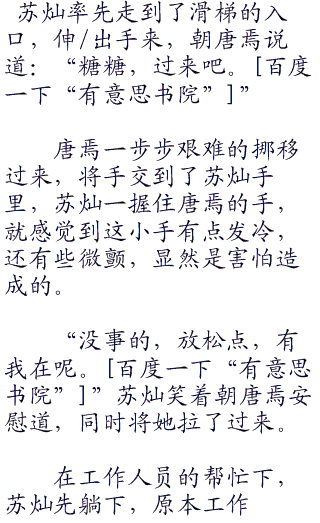 苏灿率先走到了滑梯的入
口，伸/出手来，朝唐焉说
道：“糖糖，过来吧。[百度
一下“有意思书院”]”
唐焉一步步艰难的挪移
过来，将手交到了苏灿手
里，苏灿一握住唐焉的手，
就感觉到这小手有点发冷，
还有些微颤，显然是害怕造
成的。
“没事的，放松点，有
我在呢。[百度一下“有意思
书院”]”苏灿笑着朝唐焉安
慰道，同时将她拉了过来。
在工作人员的帮忙下，
苏灿先躺下，原本工作